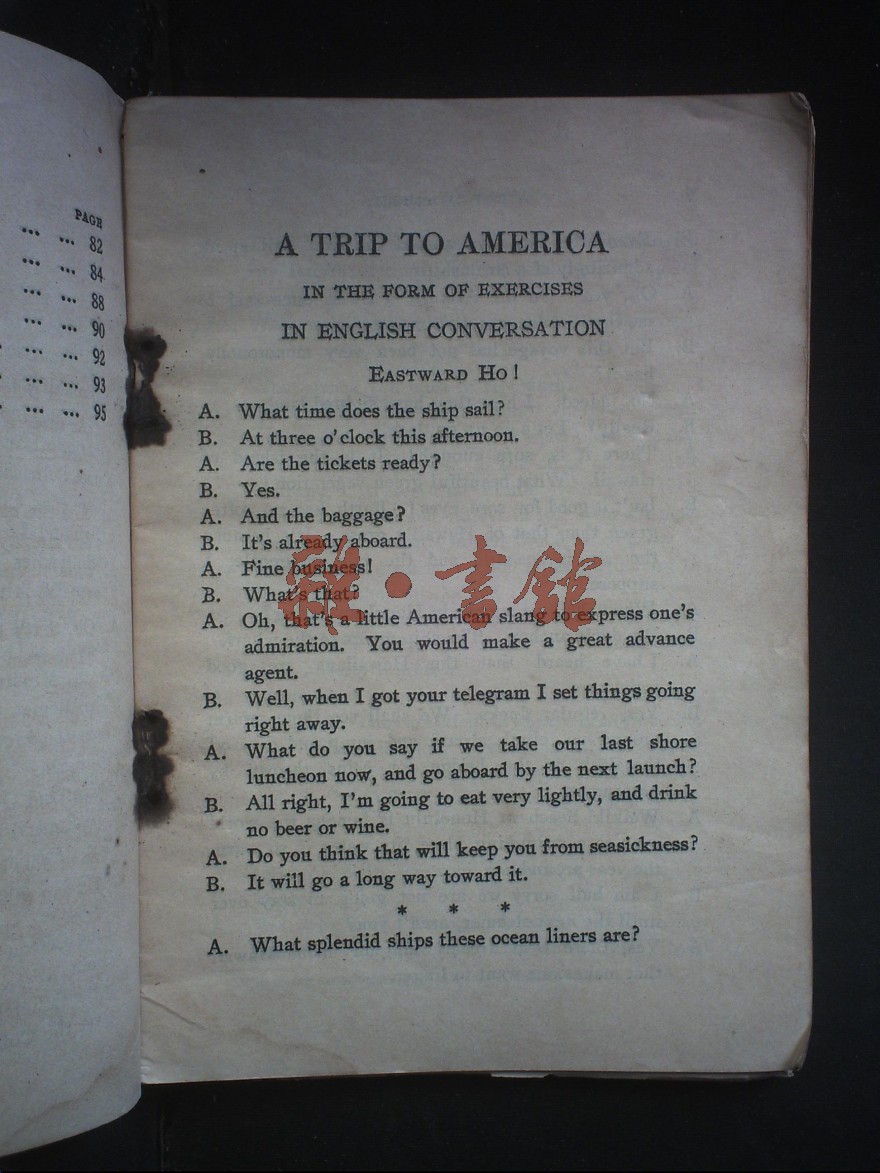 PAGE
... ... 82
... ... 84
... ... 88
... ... 90
... ... 92
... ... 93
... ... 95
A TRIP TO AMERICA
IN THE FORM OF EXERCISES
IN ENGLISH CONVERSATION
EASTWARD HO!
A. What time does the ship sail?
B. At three o'clock this afternoon.
A. Are the tickets ready?
B. Yes.
A. And the baggage?
B. It's already aboard.
A. Fine business!
B. What's that?
A. Oh, that's a little American slang to express one's
admiration. You would make a great advance
agent.
B. Well, when I got your telegram I set things going
right away.
A. What do you say if we take our last shore
luncheon now, and go aboard by the next launch?
B. All right, I'm going to eat very lightly, and drink
no beer or wine.
A. Do you think that will keep you from seasickness?
B. It will go a long way toward it.
* * *
A. What splendid ships these ocean liners are?
雜·書館